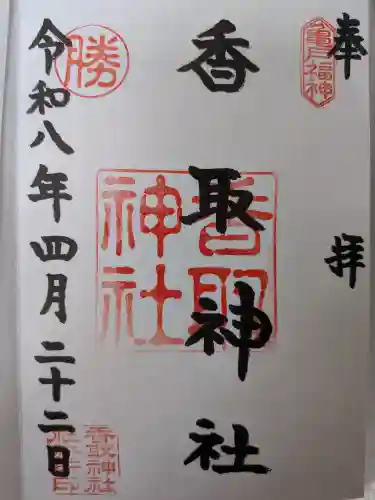 奉拝
亀戸福神
香取神社
香取神社
勝
令和八年四月二十二日